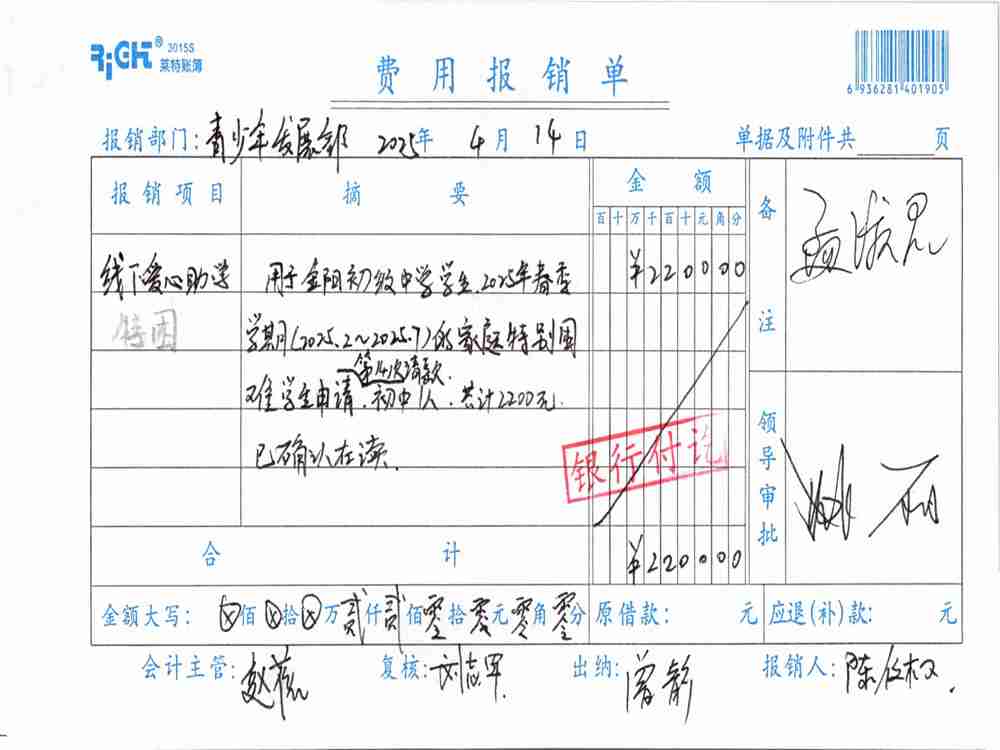 RiGHT® 3015S
莱特账簿
费用报销单
6 936281 401905
报销部门：青少年发展部 2025年 4月 14日 单据及附件共 页
报销项目 摘要 金额 备注
百十万千百十元角分
线下爱心助学 用于金阳初级中学学生，2025年春季 ¥220000
特困 学期(2025.2～2025.7)的家庭特别困
第14次请款
难学生申请，初中1人，共计2200元.
已确认在读.
银行付讫
领导审批
合计 ¥220000
金额大写：ⓧ佰ⓧ拾ⓧ万贰仟贰佰零拾零元零角零分 原借款： 元 应退(补)款： 元
会计主管： 复核：刘志军. 出纳：曾 报销人：陈